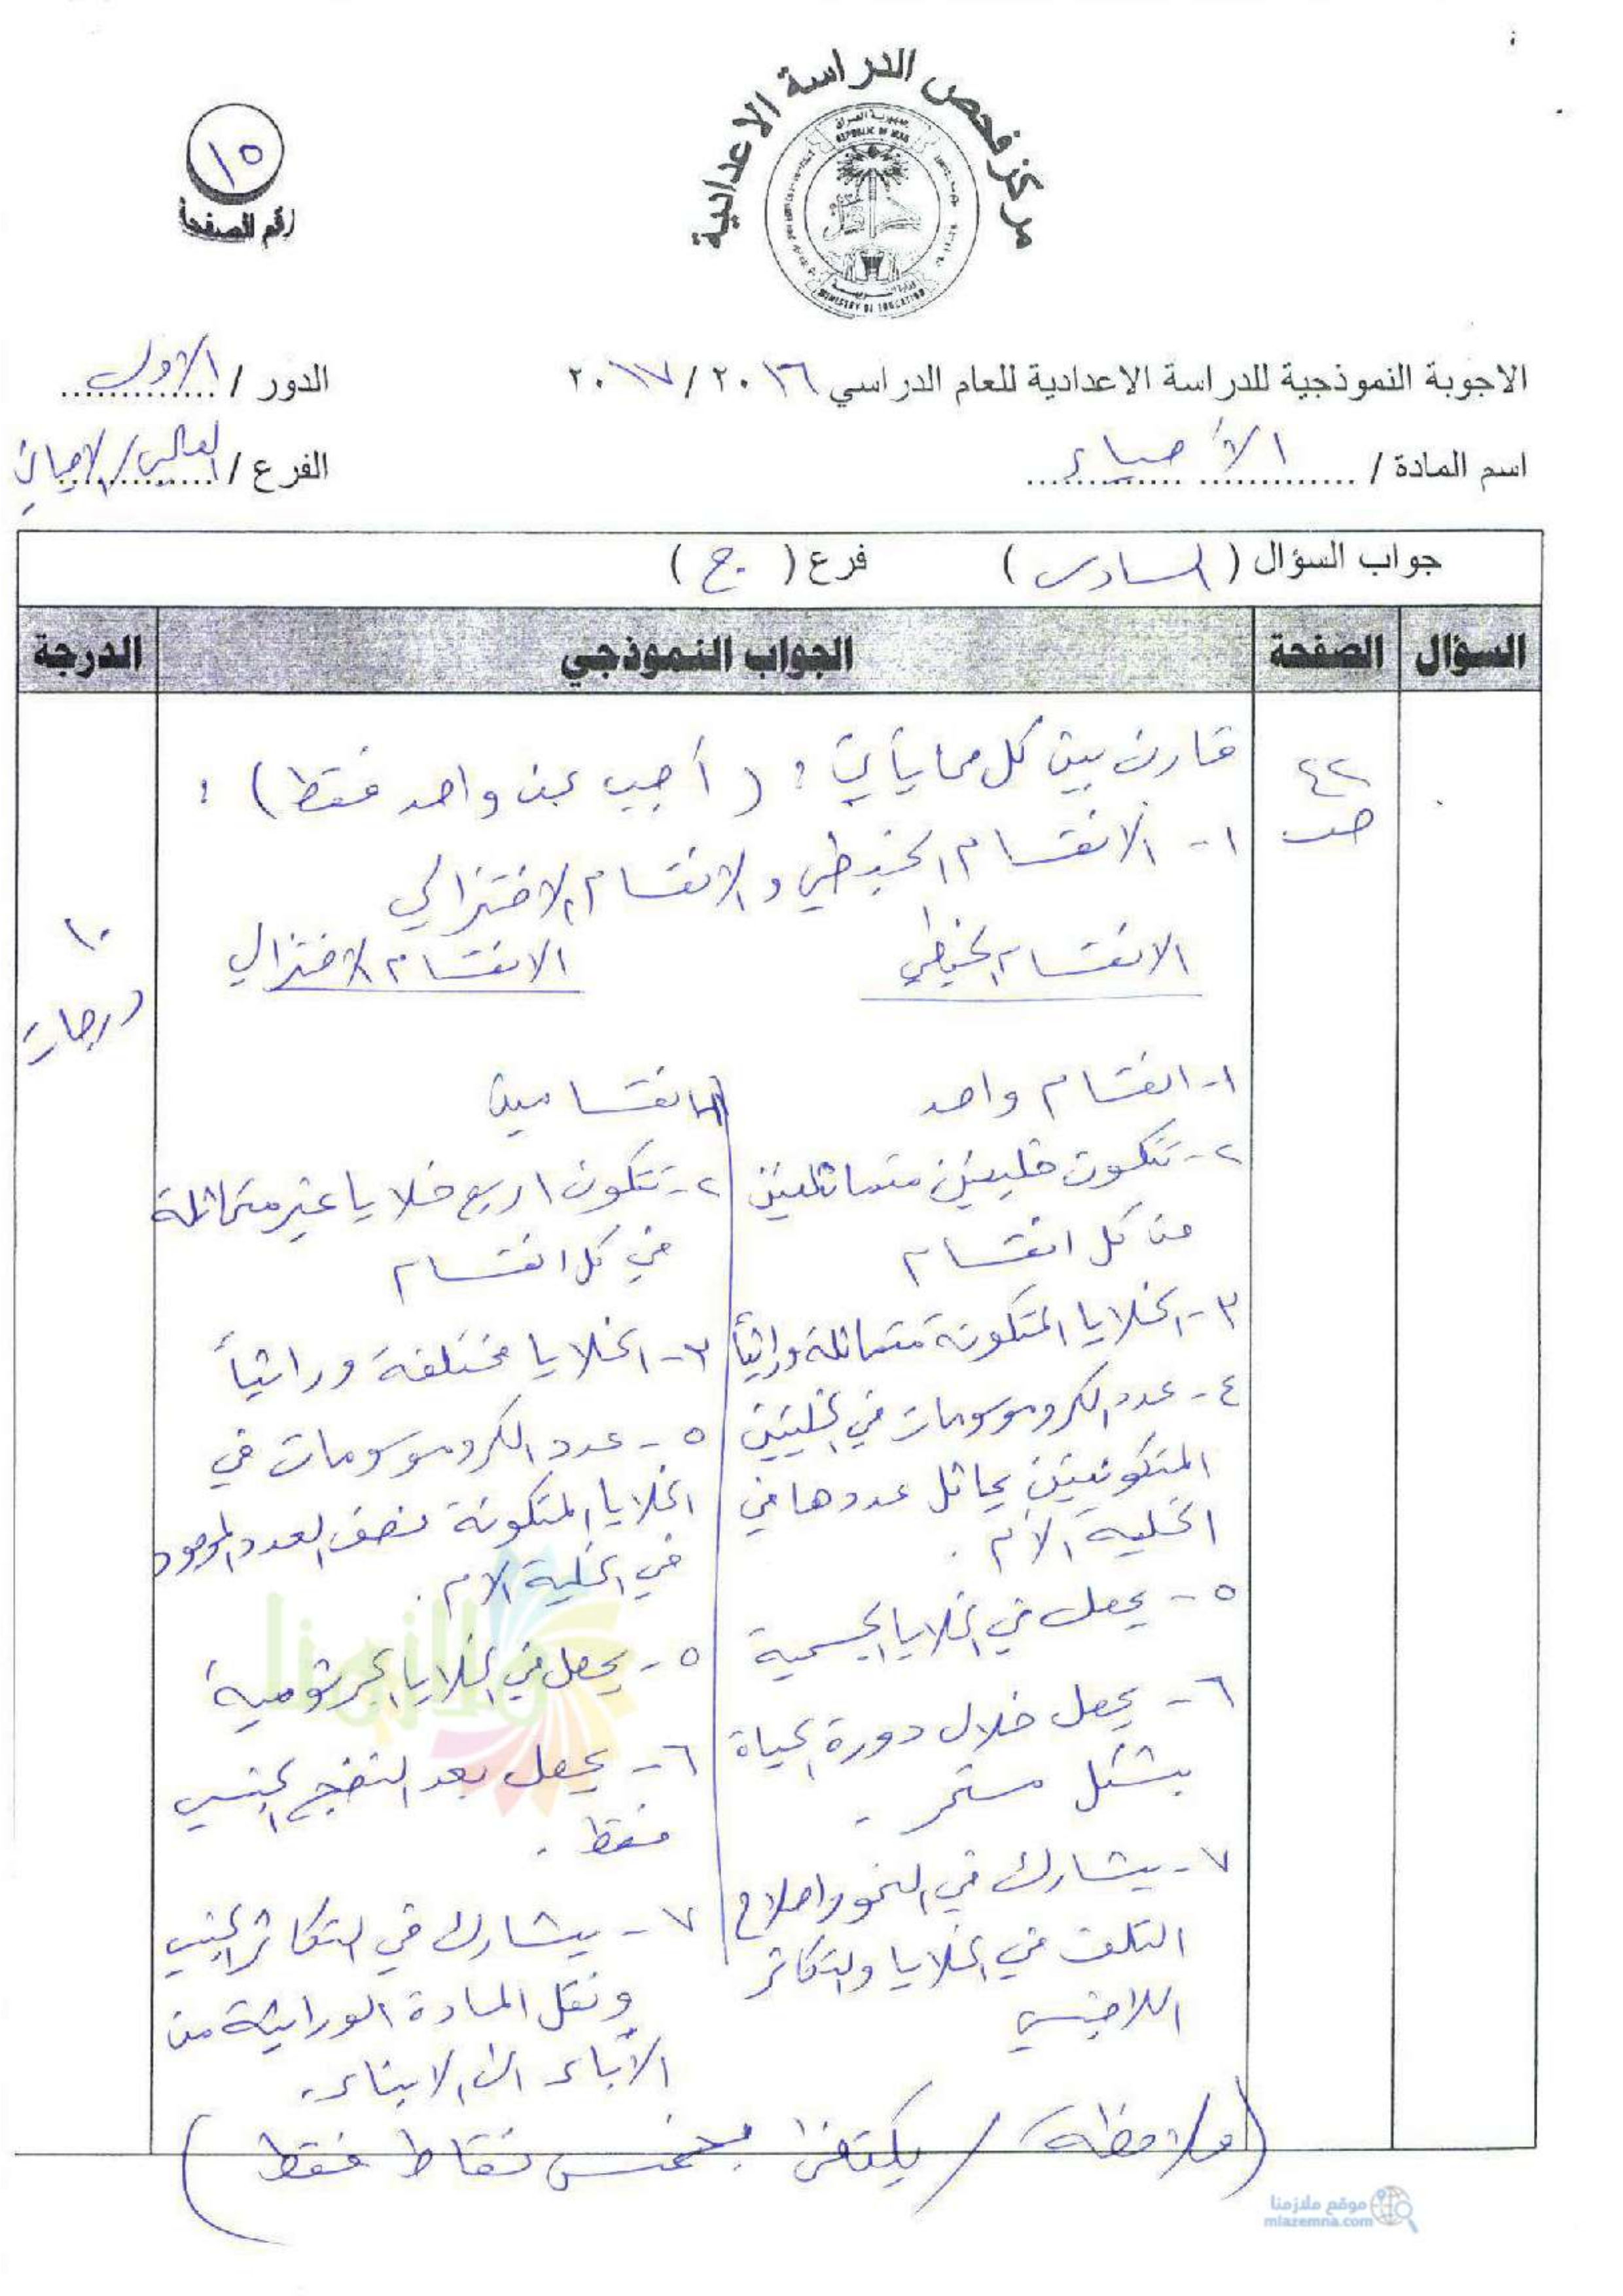 مركز فحص الدراسة الاعدادية
جمهورية العراق
REPUBLIC OF IRAQ
وزارة التربية
MINISTRY OF EDUCATION
١٥
رقم الصفحة
الاجوبة النموذجية للدراسة الاعدادية للعام الدراسي ٢٠١٦ / ٢٠١٧
الدور / الاول
اسم المادة / الأحياء
الفرع / العلمي / الاحيائي
جواب السؤال ( السادس ) فرع ( ج )
السؤال الصفحة الجواب النموذجي الدرجة
٤٢
ص
١٠
درجات
قارن بين كل مما يأتي : ( أجب عن واحد فقط ) :
١- الانقسام الخيطي والانقسام الاختزالي
الانقسام الخيطي
١- انقسام واحد
٢- تتكون خليتين متماثلتين
من كل انقسام
٣- الخلايا المتكونة متماثلة وراثياً
٤- عدد الكروموسومات في الخليتين
المتكونتين يماثل عددها في
الخلية الأم .
٥- يحصل في الخلايا الجسمية
٦- يحصل خلال دورة الحياة
بشكل مستمر .
٧- يشارك في النمو واصلاح
التلف في الخلايا والتكاثر
اللاجنسي
الانقسام الاختزالي
١- انقسامين
٢- تتكون اربع خلايا غير متماثلة
في كل انقسام
٣- الخلايا مختلفة وراثياً
٥- عدد الكروموسومات في
الخلايا المتكونة نصف العدد الموجود
في الخلية الام .
٥- يحصل في الخلايا الجرثومية
٦- يحصل بعد النضج الجنسي
فقط .
٧- يشارك في التكاثر الجنسي
ونقل المادة الوراثية من
الأباء الى الابناء .
( ملاحظة / يكتفى بخمس نقاط فقط )
ملازمنا
موقع ملازمنا
mlazemna.com